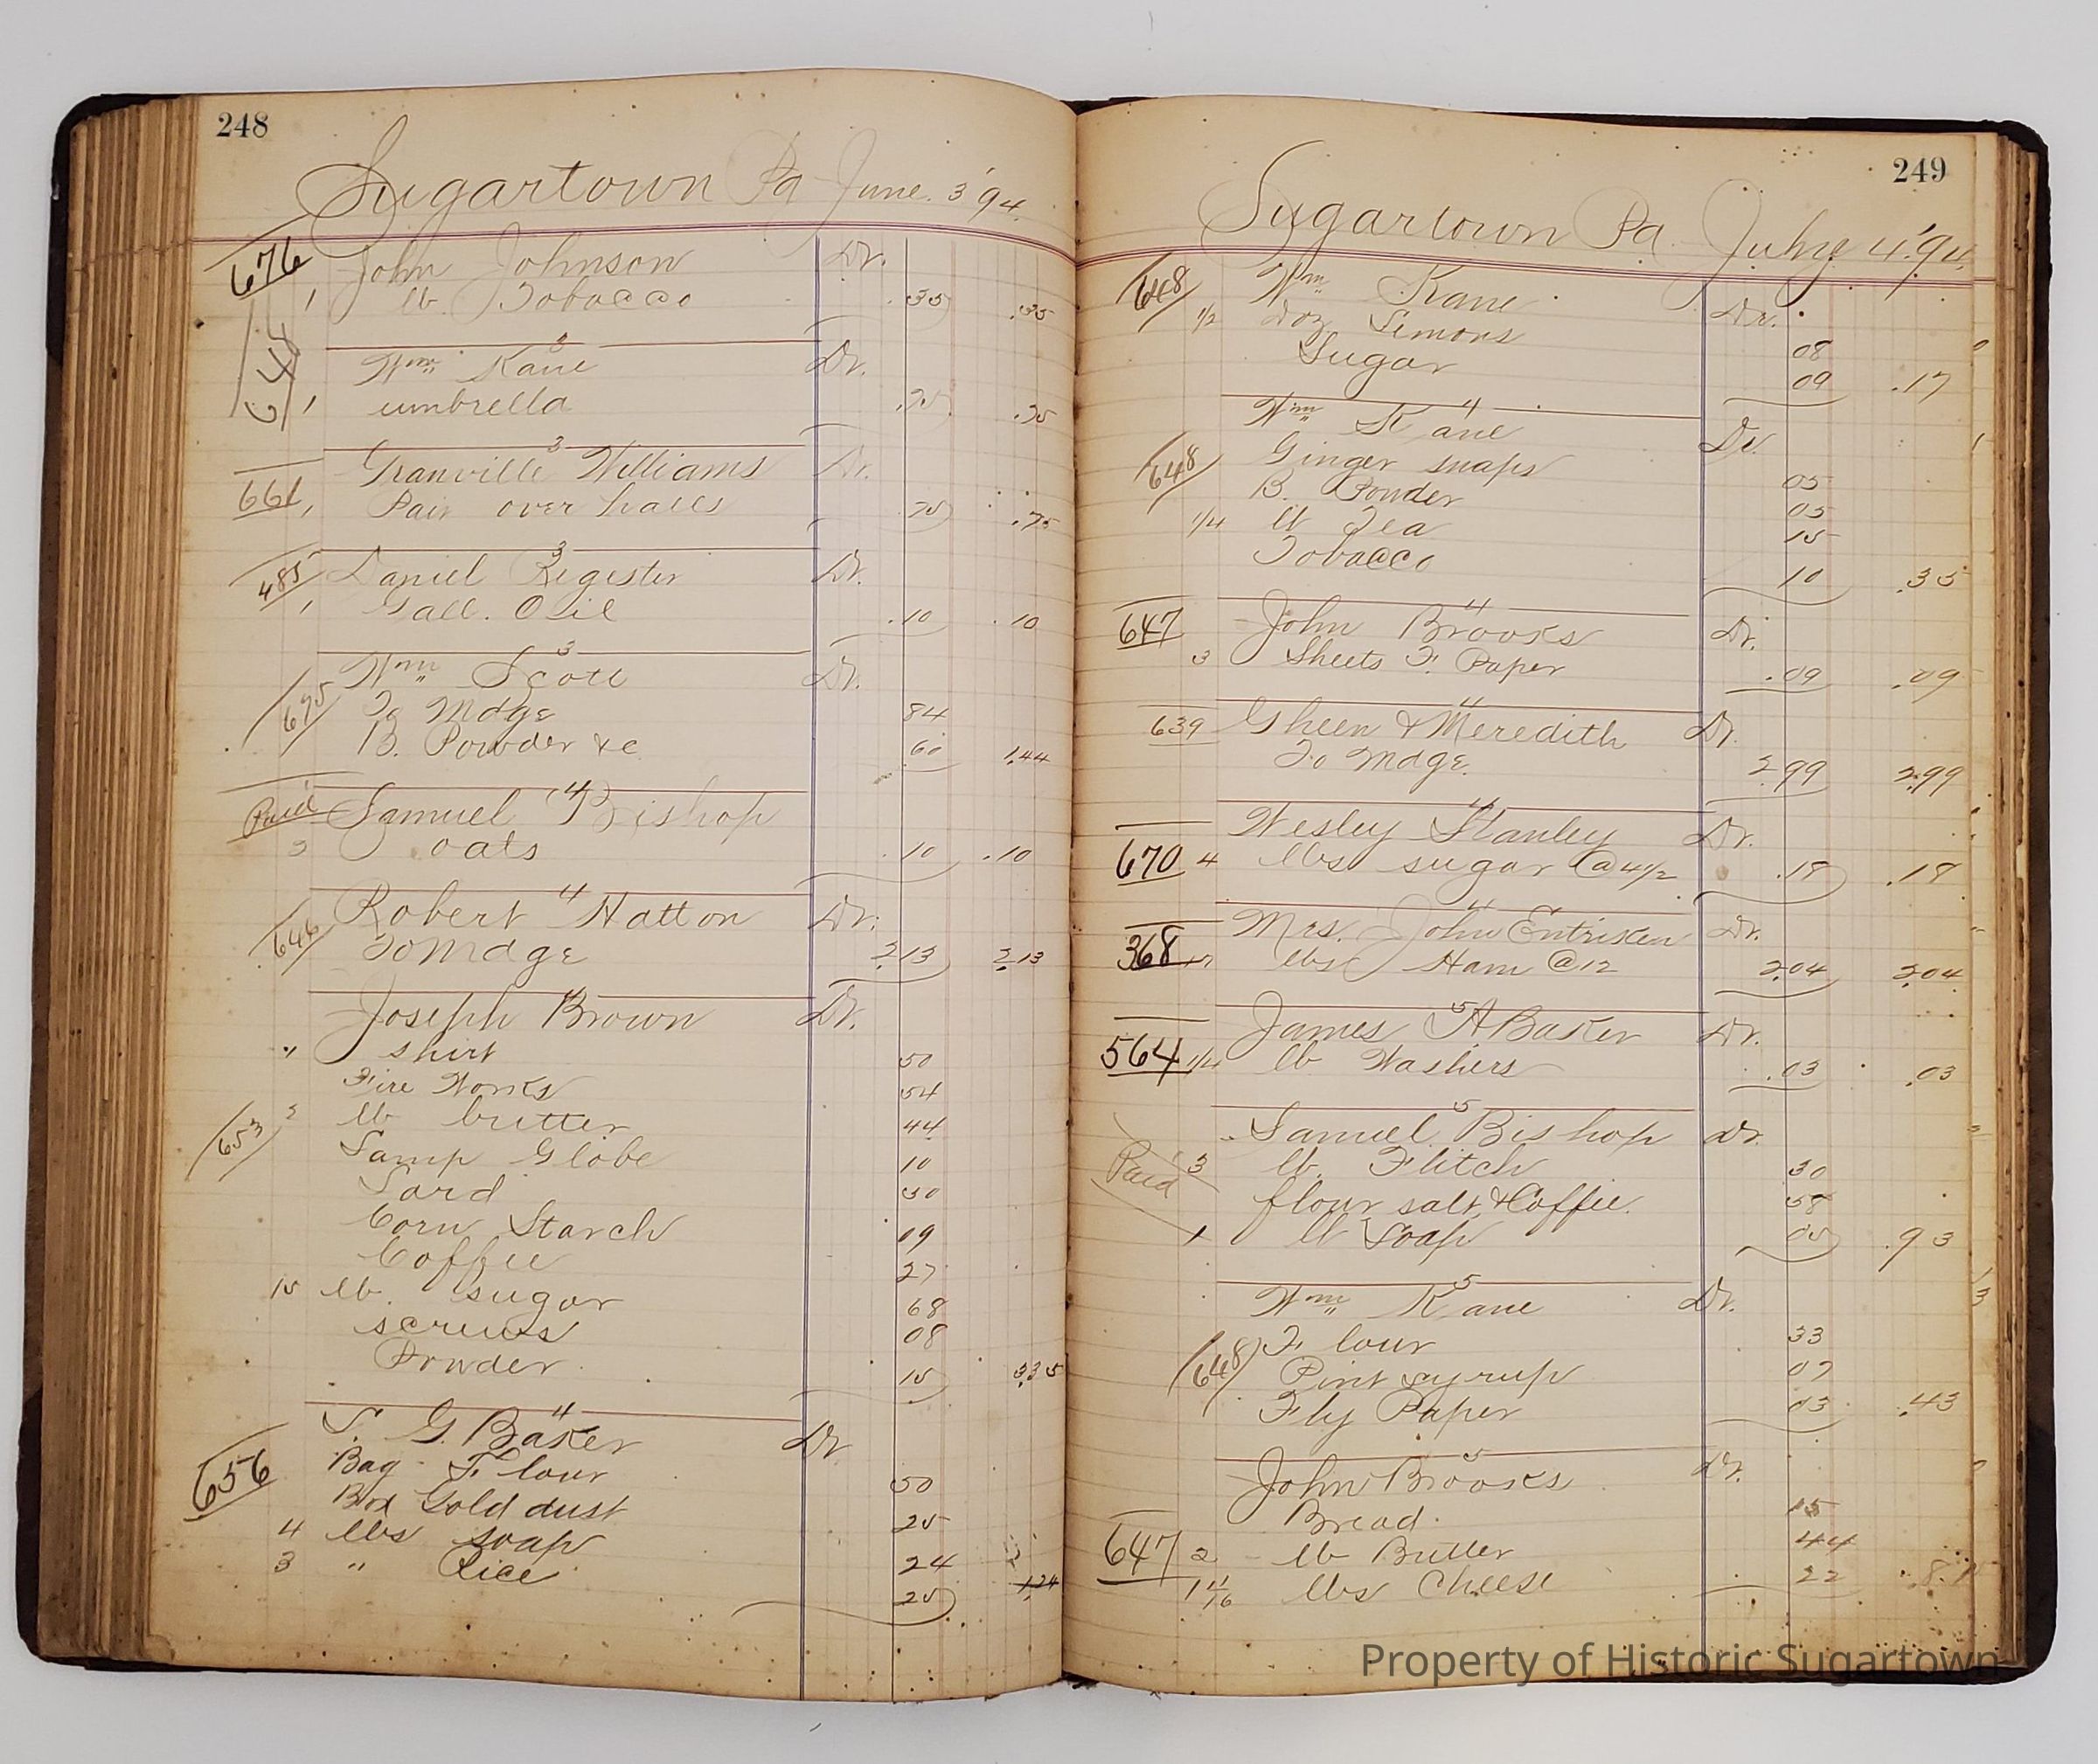 248
Sugartown Pa June. 3 '94.
676 John Johnson Dr.
1 lb. Tobacco .35 .35
3
648 Wm Kane Dr.
1 umbrella .75 .75
3
661 Granville Williams Dr.
1 Pair over halls 75 .75
3
485 Daniel Register Dr.
1 Gall. Oil .10 .10
3
675 Wm Scott Dr.
To Mdge 84
B. Powder &c 60 1.44
4
Paid Samuel Bishop
2 oats .10 .10
4
646 Robert Hatton Dr.
To Mdge 2.13 2.13
4
Joseph Brown Dr.
" shirt 50
Fire Works 54
653 2 lb butter 44
Lamp Globe 10
Lard 50
Corn Starch 09
Coffee 27
15 lb. sugar 68
screws 08
Powder 15 3.35
4
656 S. G. Baker Dr.
Bag Flour 50
Box Gold dust 25
4 lbs soap 24
3 " Rice 25 1.24
249
Sugartown Pa July 4 '94.
648 Wm Kane Dr.
1/2 Doz Lemons 08
Sugar 09 .17
4
Wm Kane Dr.
648 Ginger snaps 05
B. Powder 05
1/4 lb Tea 15
Tobacco 10 .35
4
647 John Brooks Dr.
3 Sheets F. Paper .09 .09
4
639 Gheen & Meredith Dr.
To Mdge. 2.99 2.99
4
Wesley Stanley Dr.
670 4 lbs sugar @ 4 1/2 .18 .18
4
Mrs. John Entriken Dr.
368 17 lbs Ham @ 12 2.04 2.04
5
James A Baker Dr.
564 1/4 lb Washers .03 .03
5
Samuel Bishop Dr.
Paid 3 lb. Flitch 30
flour salt & Coffee. 58
1 lb Soap 05 .93
5
Wm Kane Dr.
648 Flour 33
Pint syrup 07
Fly Paper 03 .43
5
John Brooks Dr.
Bread. 15
647 2 lb Butter 44
1 11/16 lbs Cheese 22 .81
Property of Historic Sugartown